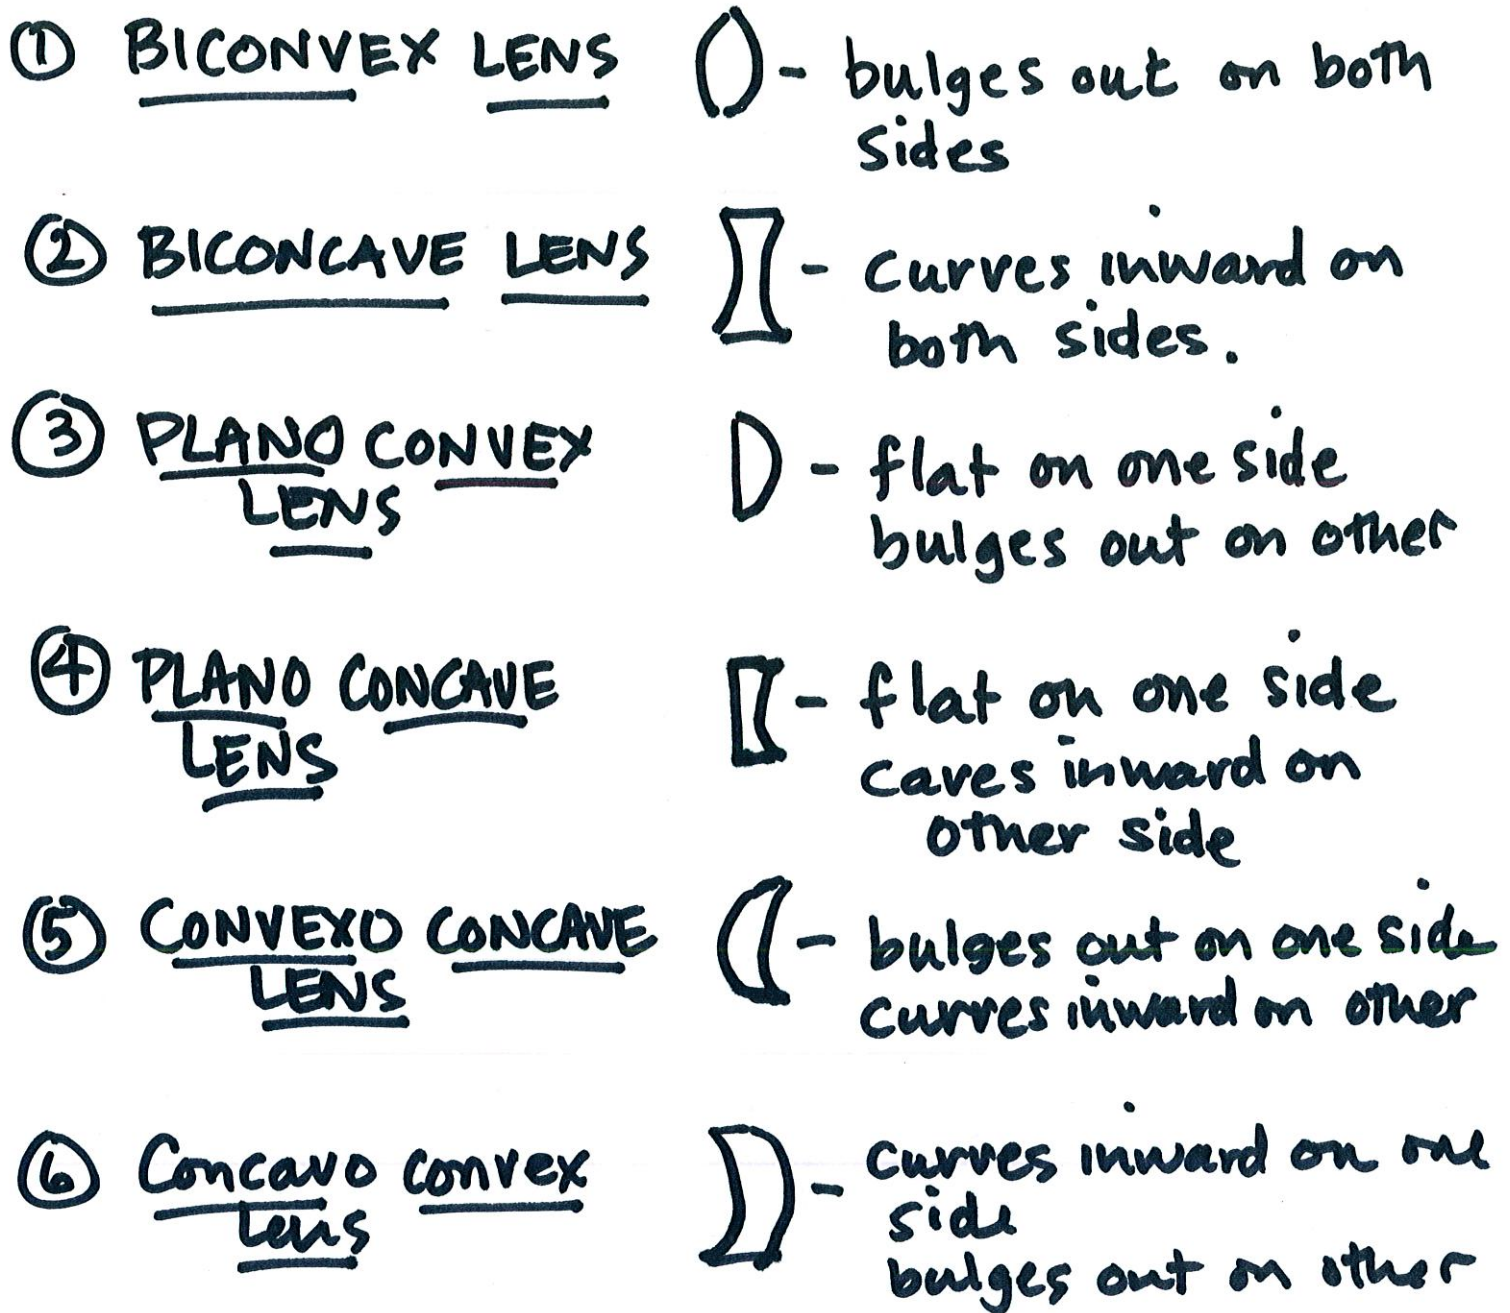 ① BICONVEX LENS - bulges out on both
sides
② BICONCAVE LENS - curves inward on
both sides.
③ PLANO CONVEX - flat on one side
LENS bulges out on other
④ PLANO CONCAVE - flat on one side
LENS caves inward on
other side
⑤ CONVEXO CONCAVE - bulges out on one side
LENS curves inward on other
⑥ Concavo convex - curves inward on one
Lens side
bulges out on other